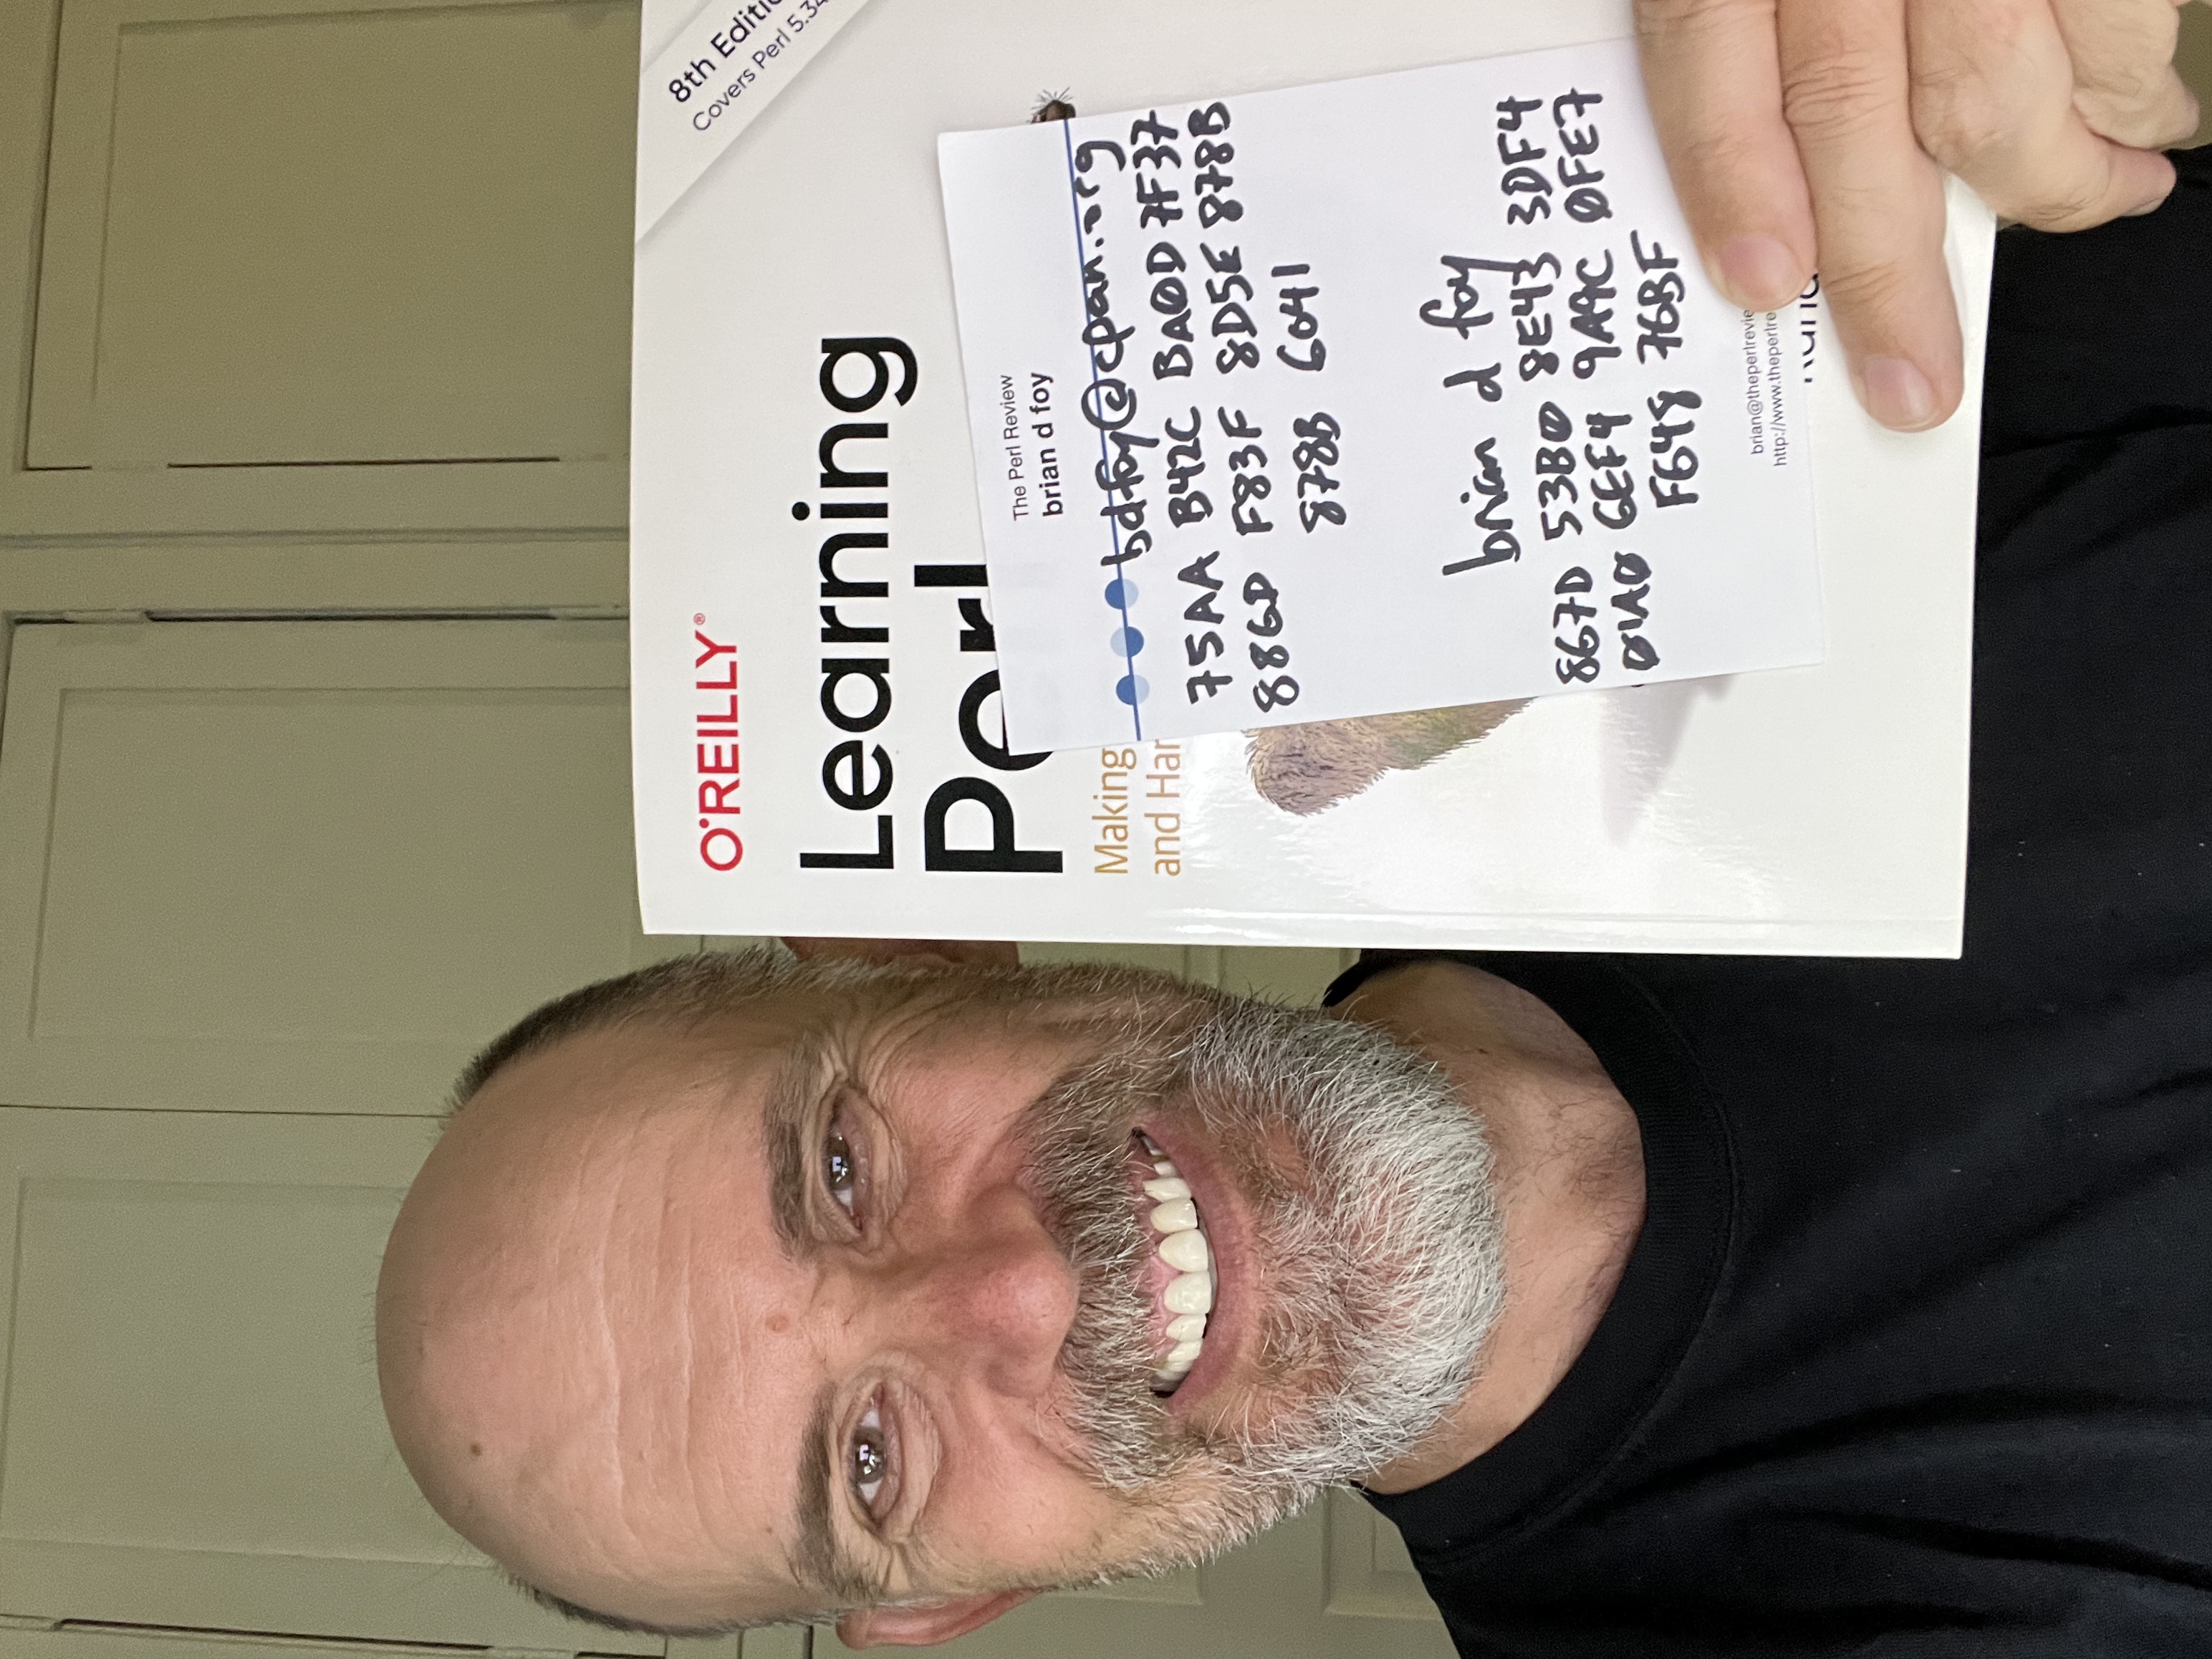 O'REILLY®
8th Editi
Covers Perl 5.34
Learning
Perl
Making
and Har
The Perl Review
brian d foy
bdfoy@cpan.org
75AA B42C BA0D 7F37
886D F83F 8D5E 878B
878B 6041
brian d foy
867D 53B0 8E43 3DF4
01A0 6EF4 9A9C 0FE7
F648 76BF
brian@theperlrevie
http://www.theperlre